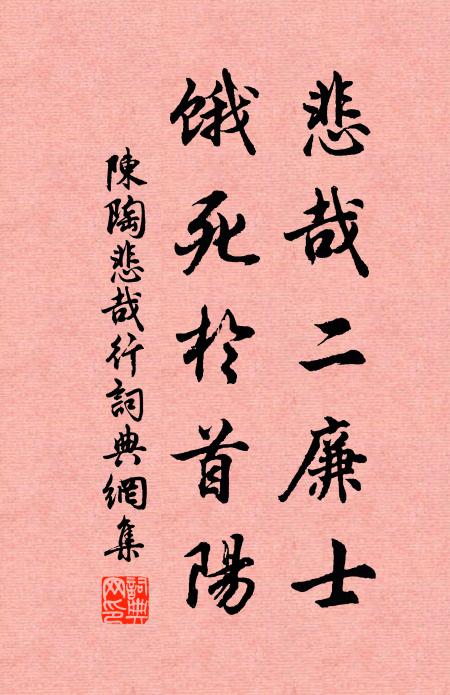 悲哉二廉士
餓死於首陽
陳陶悲哉行詞典網集
詞典網印